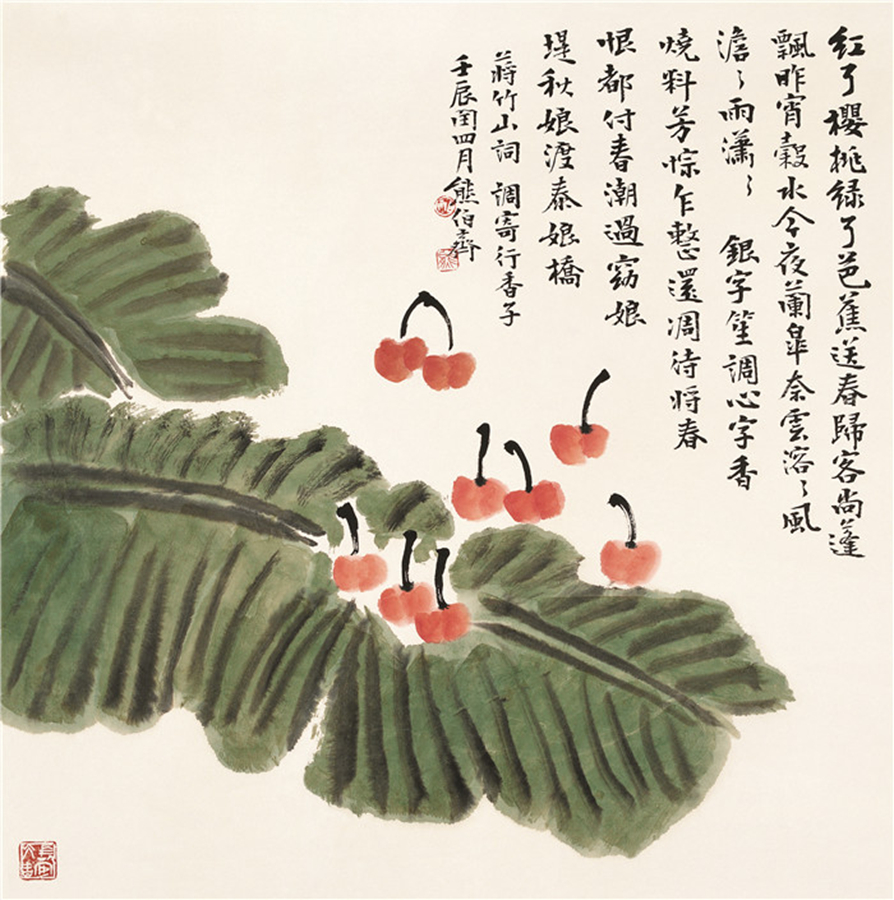 红了櫻桃绿了芭蕉送春歸客尚蓬
飄昨宵穀水今夜蘭皐奈雲溶〻風
澹〻雨瀟〻 銀字笙調心字香
燒料芳悰乍整還凋待將春
恨都付春潮過窈娘
堤秋娘渡泰娘橋
蔣竹山詞 調寄行香子
壬辰閏四月熊伯齊